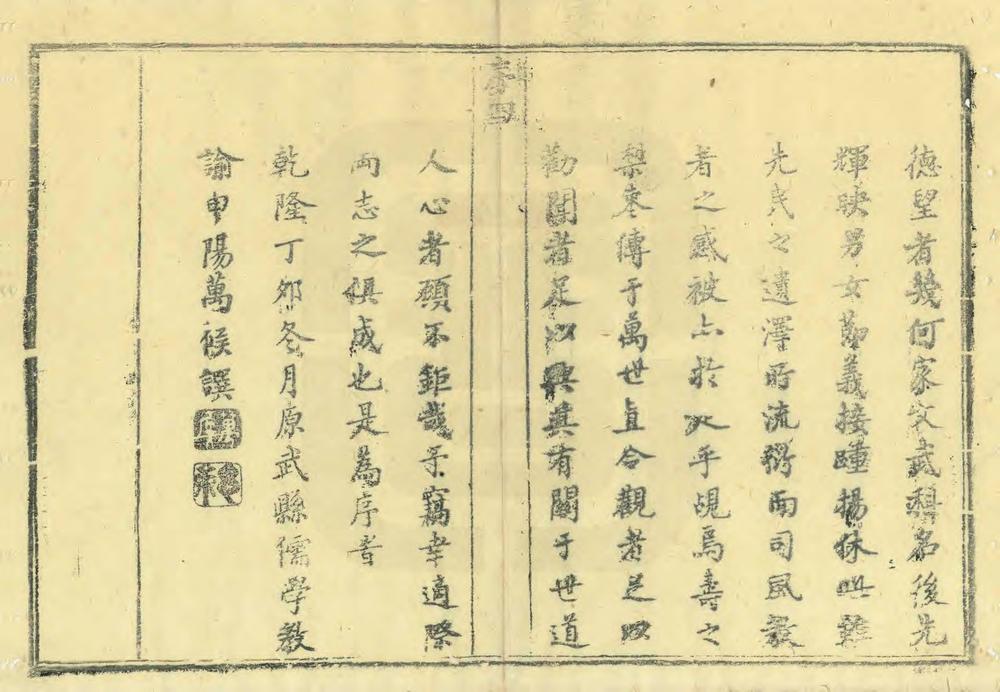 德望者幾何家文武科名後先
輝映男女節義接踵揚休此雖
先民之遺澤所流衍而司風教
者之感被亦於此乎覘焉壽之
梨棗傳于萬世直合觀者足以
勸聞者足以興其有關于世道
人心者顧不鉅哉予竊幸適際
兩志之俱成也是為序旹
乾隆丁卯冬月原武縣儒學教
諭申陽萬候譔